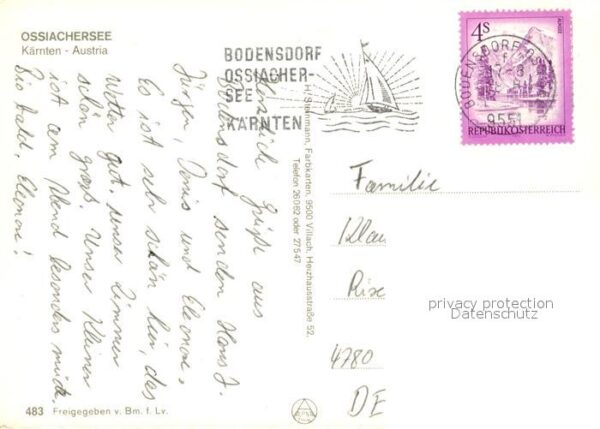 OSSIACHERSEE
Kärnten - Austria
Herzliche Grüße aus
Bodensdorf senden Hans J.
Jürgen, Doris und Eleonore.
Es ist sehr schön hier, das
Wetter gut, unser Zimmer
schön groß. Unser Kleiner
ist am Abend besonders müde.
Bis bald, Eleonore!
483 Freigegeben v. Bm. f. Lv.
BODENSDORF
OSSIACHER-
SEE
KÄRNTEN
H. Steinmann, Farbkarten, 9500 Villach, Heizhausstraße 52,
Telefon 26062 oder 27547
4S
REPUBLIK ÖSTERREICH
BODENSDORF
9551
Familie
Klau
Rixe
4780
DE
privacy protection
Datenschutz